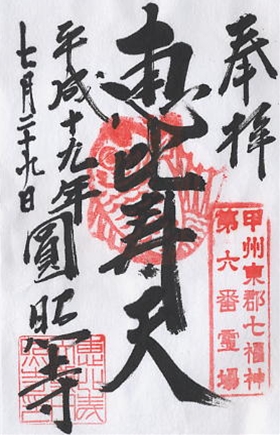 奉拝
甲州東郡七福神
第六番霊場
恵比寿天
平成十九年
七月二十九日
圓照寺